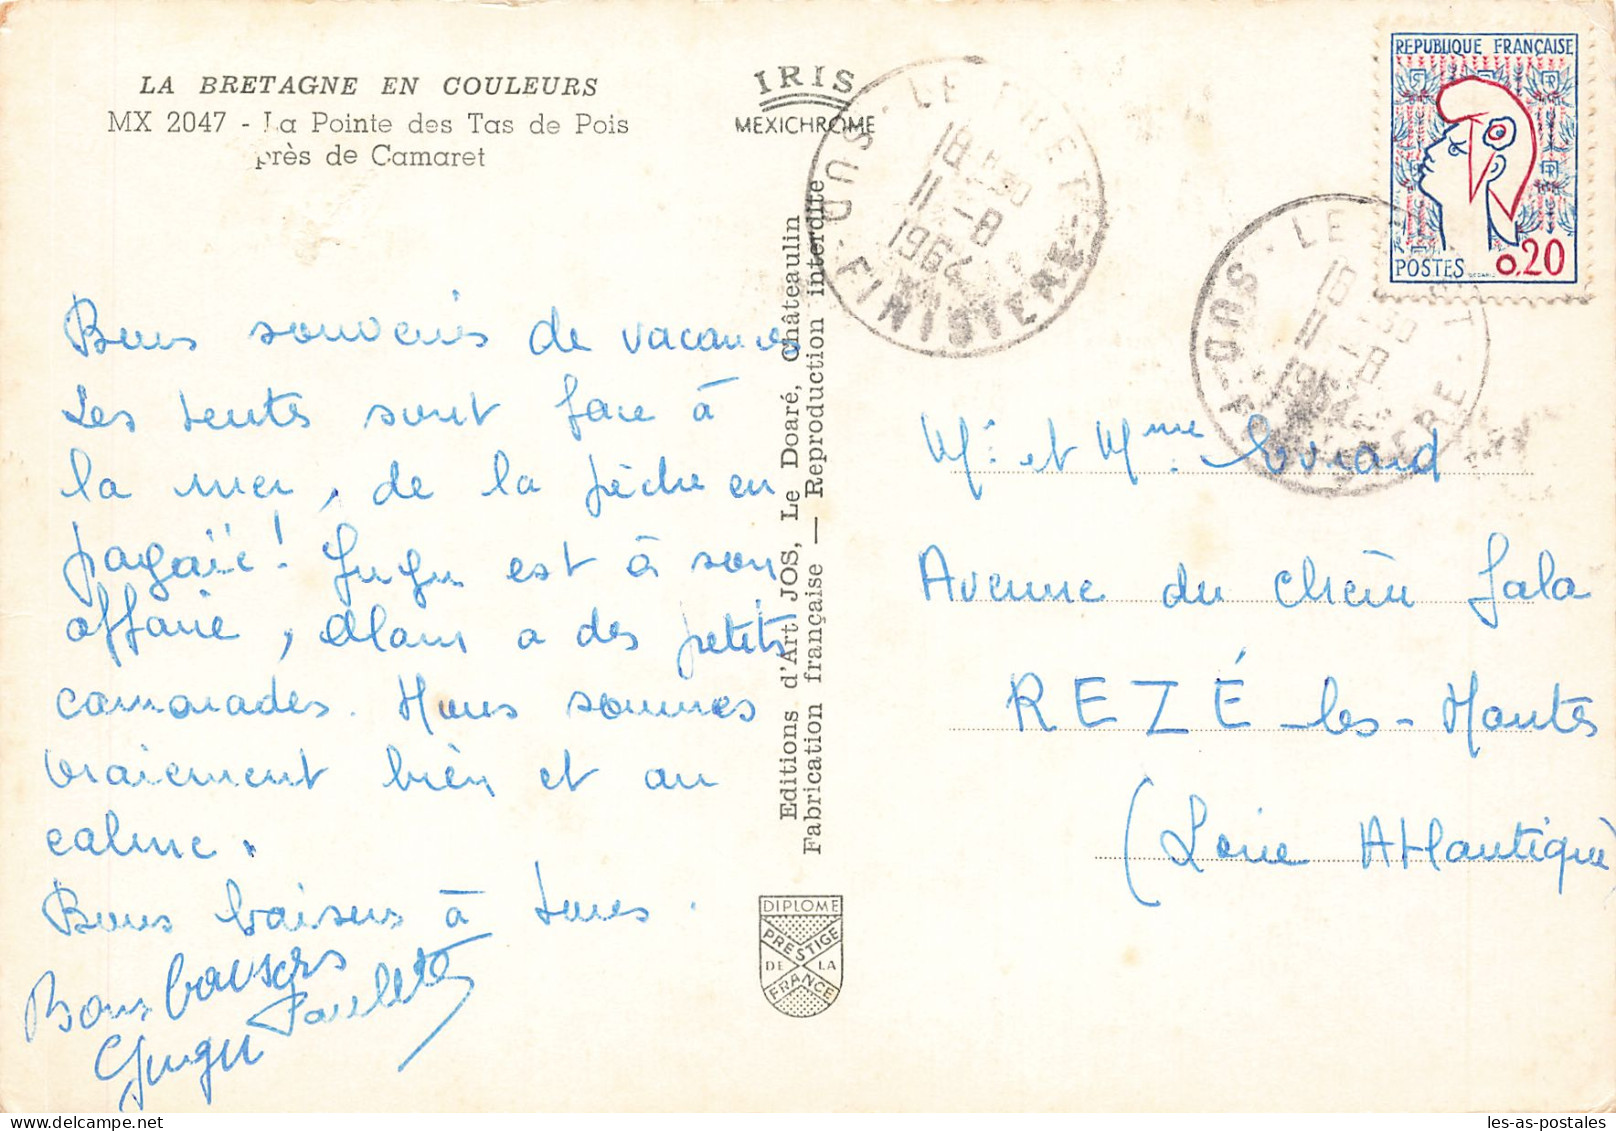 LA BRETAGNE EN COULEURS
MX 2047 - La Pointe des Tas de Pois
près de Camaret
IRIS
MEXICHROME
Bons souvenirs de vacances
Les tentes sont face à
la mer, de la pêche en
pagaïe! Gugu est à son
affaire, Alain a des petits
camarades. Nous sommes
vraiement bien et au
calme.
Bons baisers à tous.
Bons baisers
Paulette
Gugu
Editions d'Art JOS, Le Doaré, Châteaulin
Fabrication française — Reproduction interdite
DIPLOME
PRESTIGE
DE LA
FRANCE
REPUBLIQUE FRANÇAISE
POSTES 0,20
18 30
11 -8
1964
FINISTERE
18 30
11 -8
1964
Mr et Mme
Avenue du Gala
REZÉ-les-Nantes
(Loire Atlantique)
les-as-postales
© www.delcampe.net